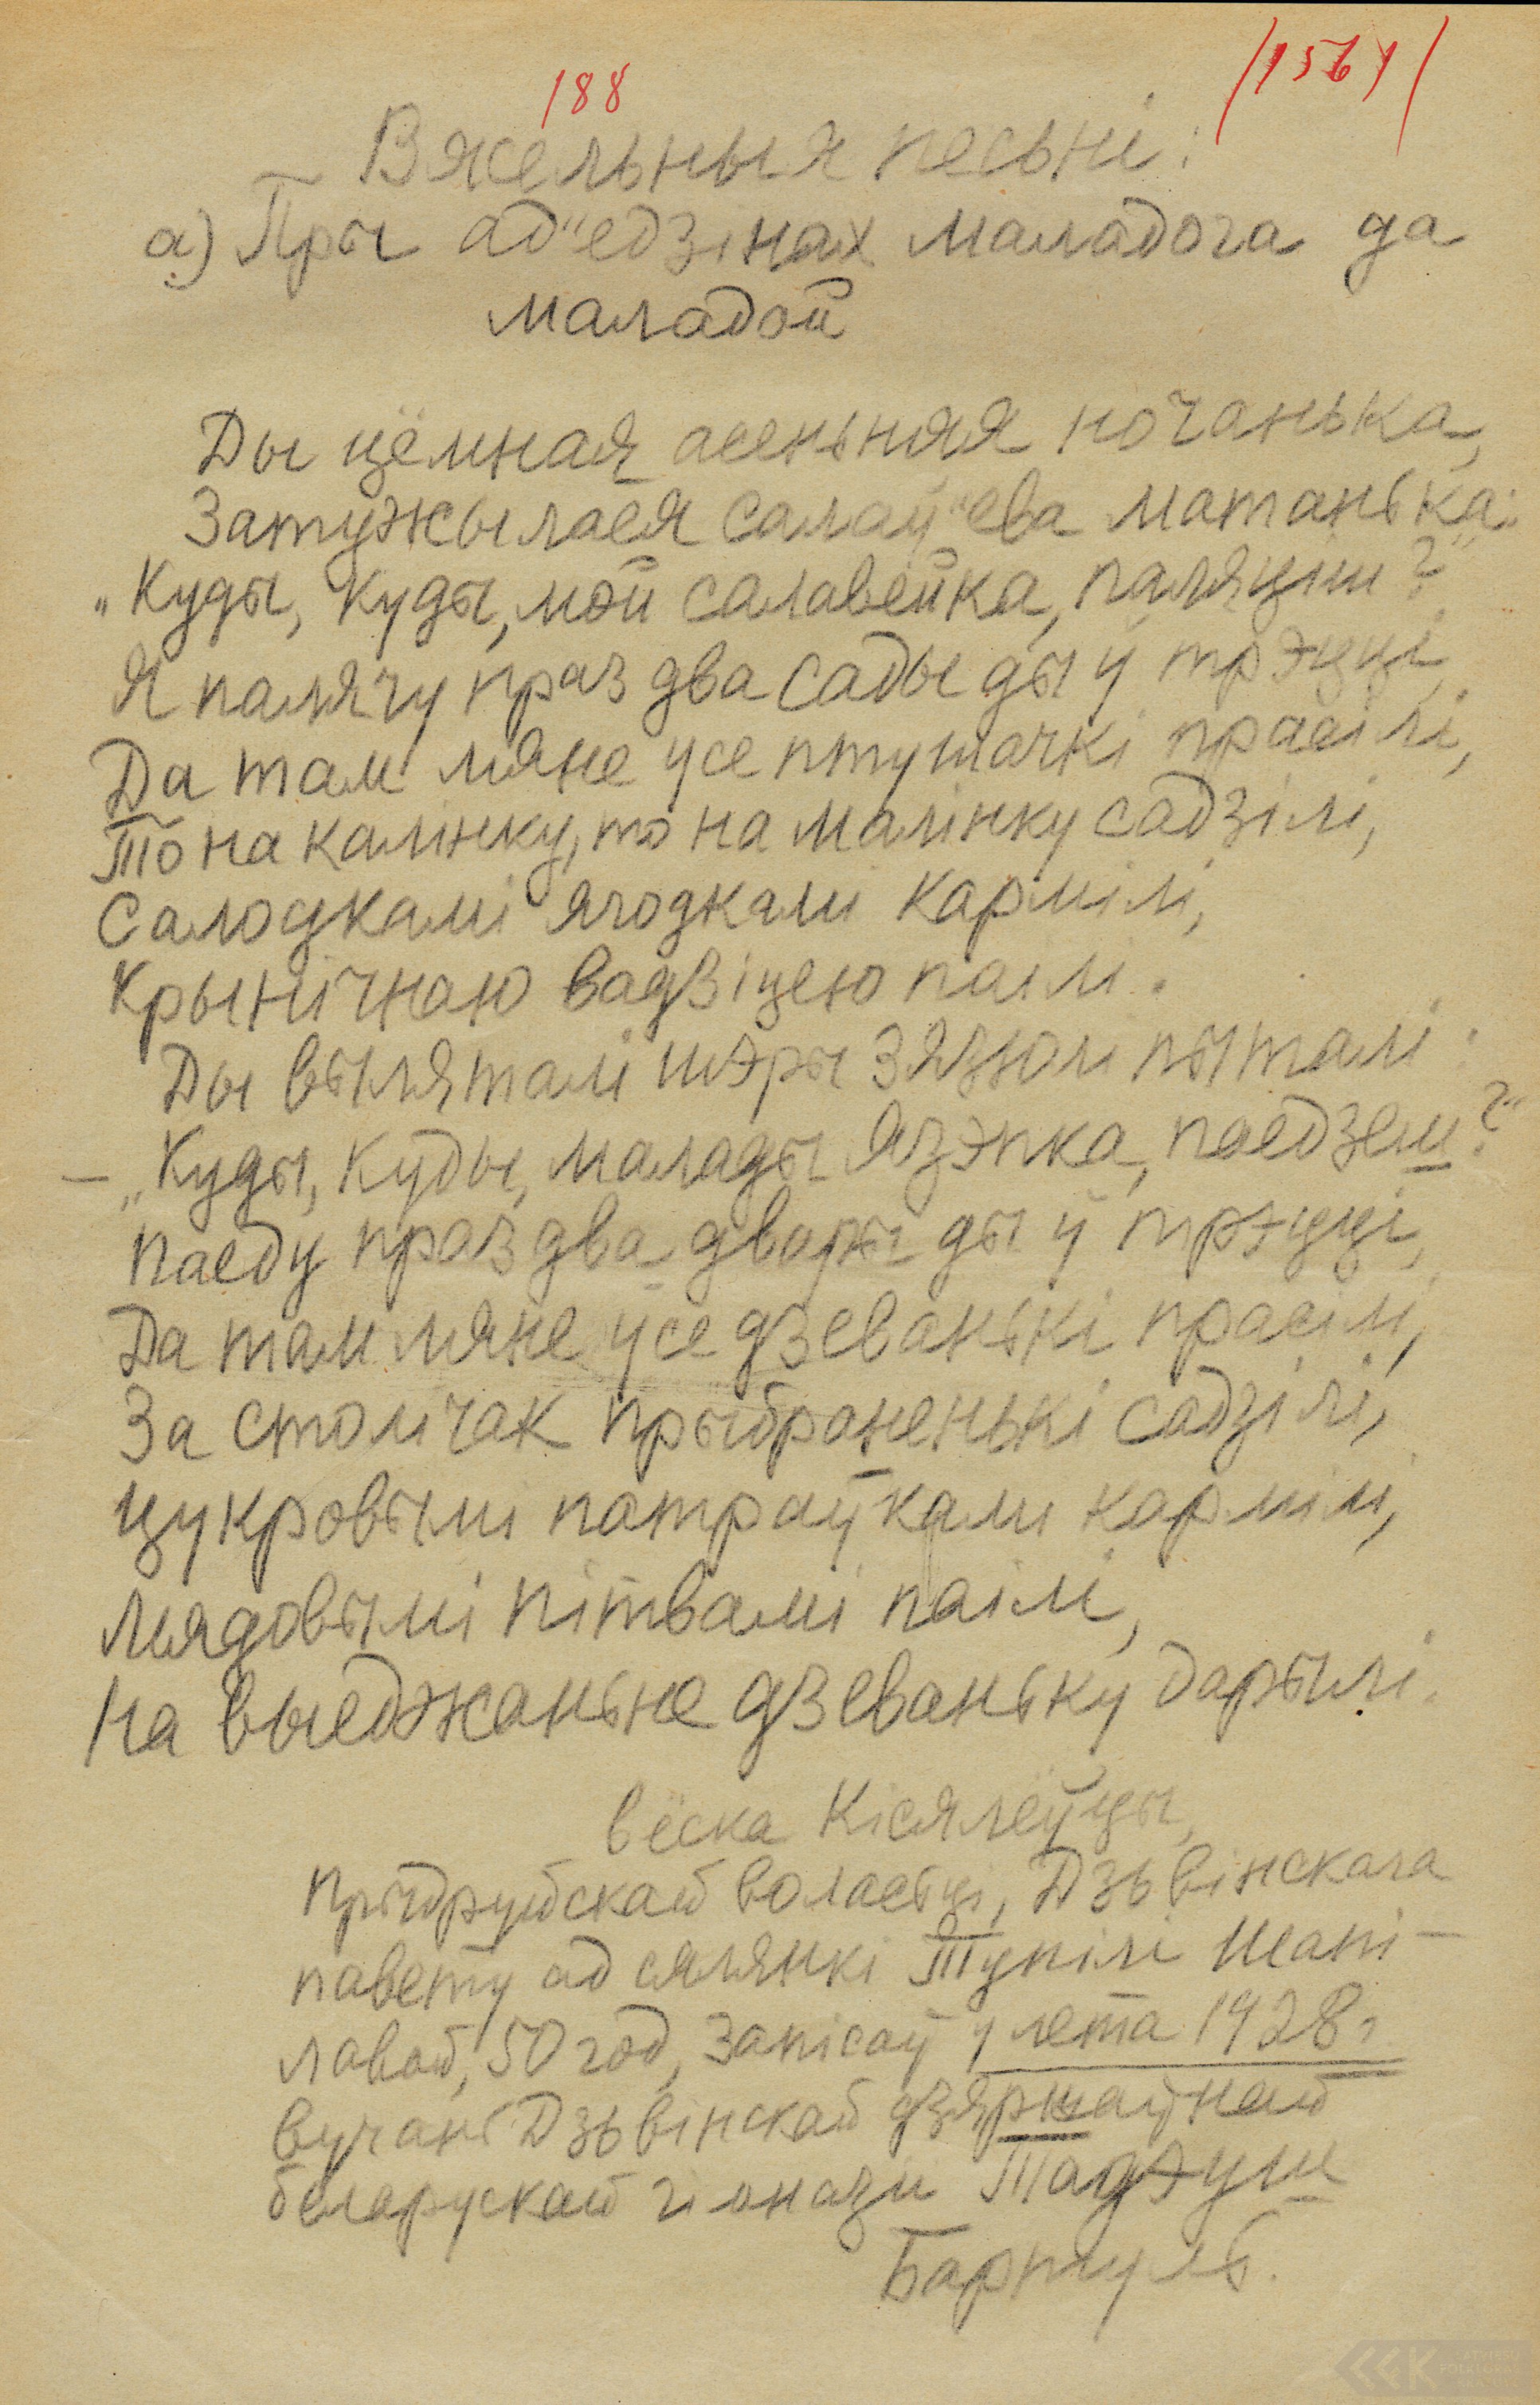 188
/1561/
Вясельныя песьні:
а) Пры ад"едзінах маладога да
маладой
Ды цёмная асеньняя ночанька,
Затужылася салаў"ева матанька:
„Куды, куды, мой салавейка, паляціш?"
Я палячу праз два сады ды ў трэцці,
Да там мяне усе птушачкі прасілі,
То на калінку, то на малінку садзілі,
Салодкамі ягодкамі кармілі,
Крынічнаю вадзіцею паілі.
Ды выляталі шэры зязюлі пыталі:
– „Куды, куды, малады Язэпка, паедзеш?"
Паеду праз два двары ды ў трэцці,
Да там мяне ўсе дзеванькі прасілі,
За столічак прыбраненькі садзілі,
Цукровымі патраўкамі кармілі,
Мядовымі пітвамі паілі,
На выеджаньне дзеваньку дарылі.
вёска Кісялеўцы,
Прыдруйскай воласьці, Дзьвінскага
павету ад сялянкі Тупілі Шапі-
лавай, 50 год, Запісаў у лета 1928 г.
вучань Дзьвінскай дзяршаўнай
беларускай гімназіі Тадэуш
Бартуль.